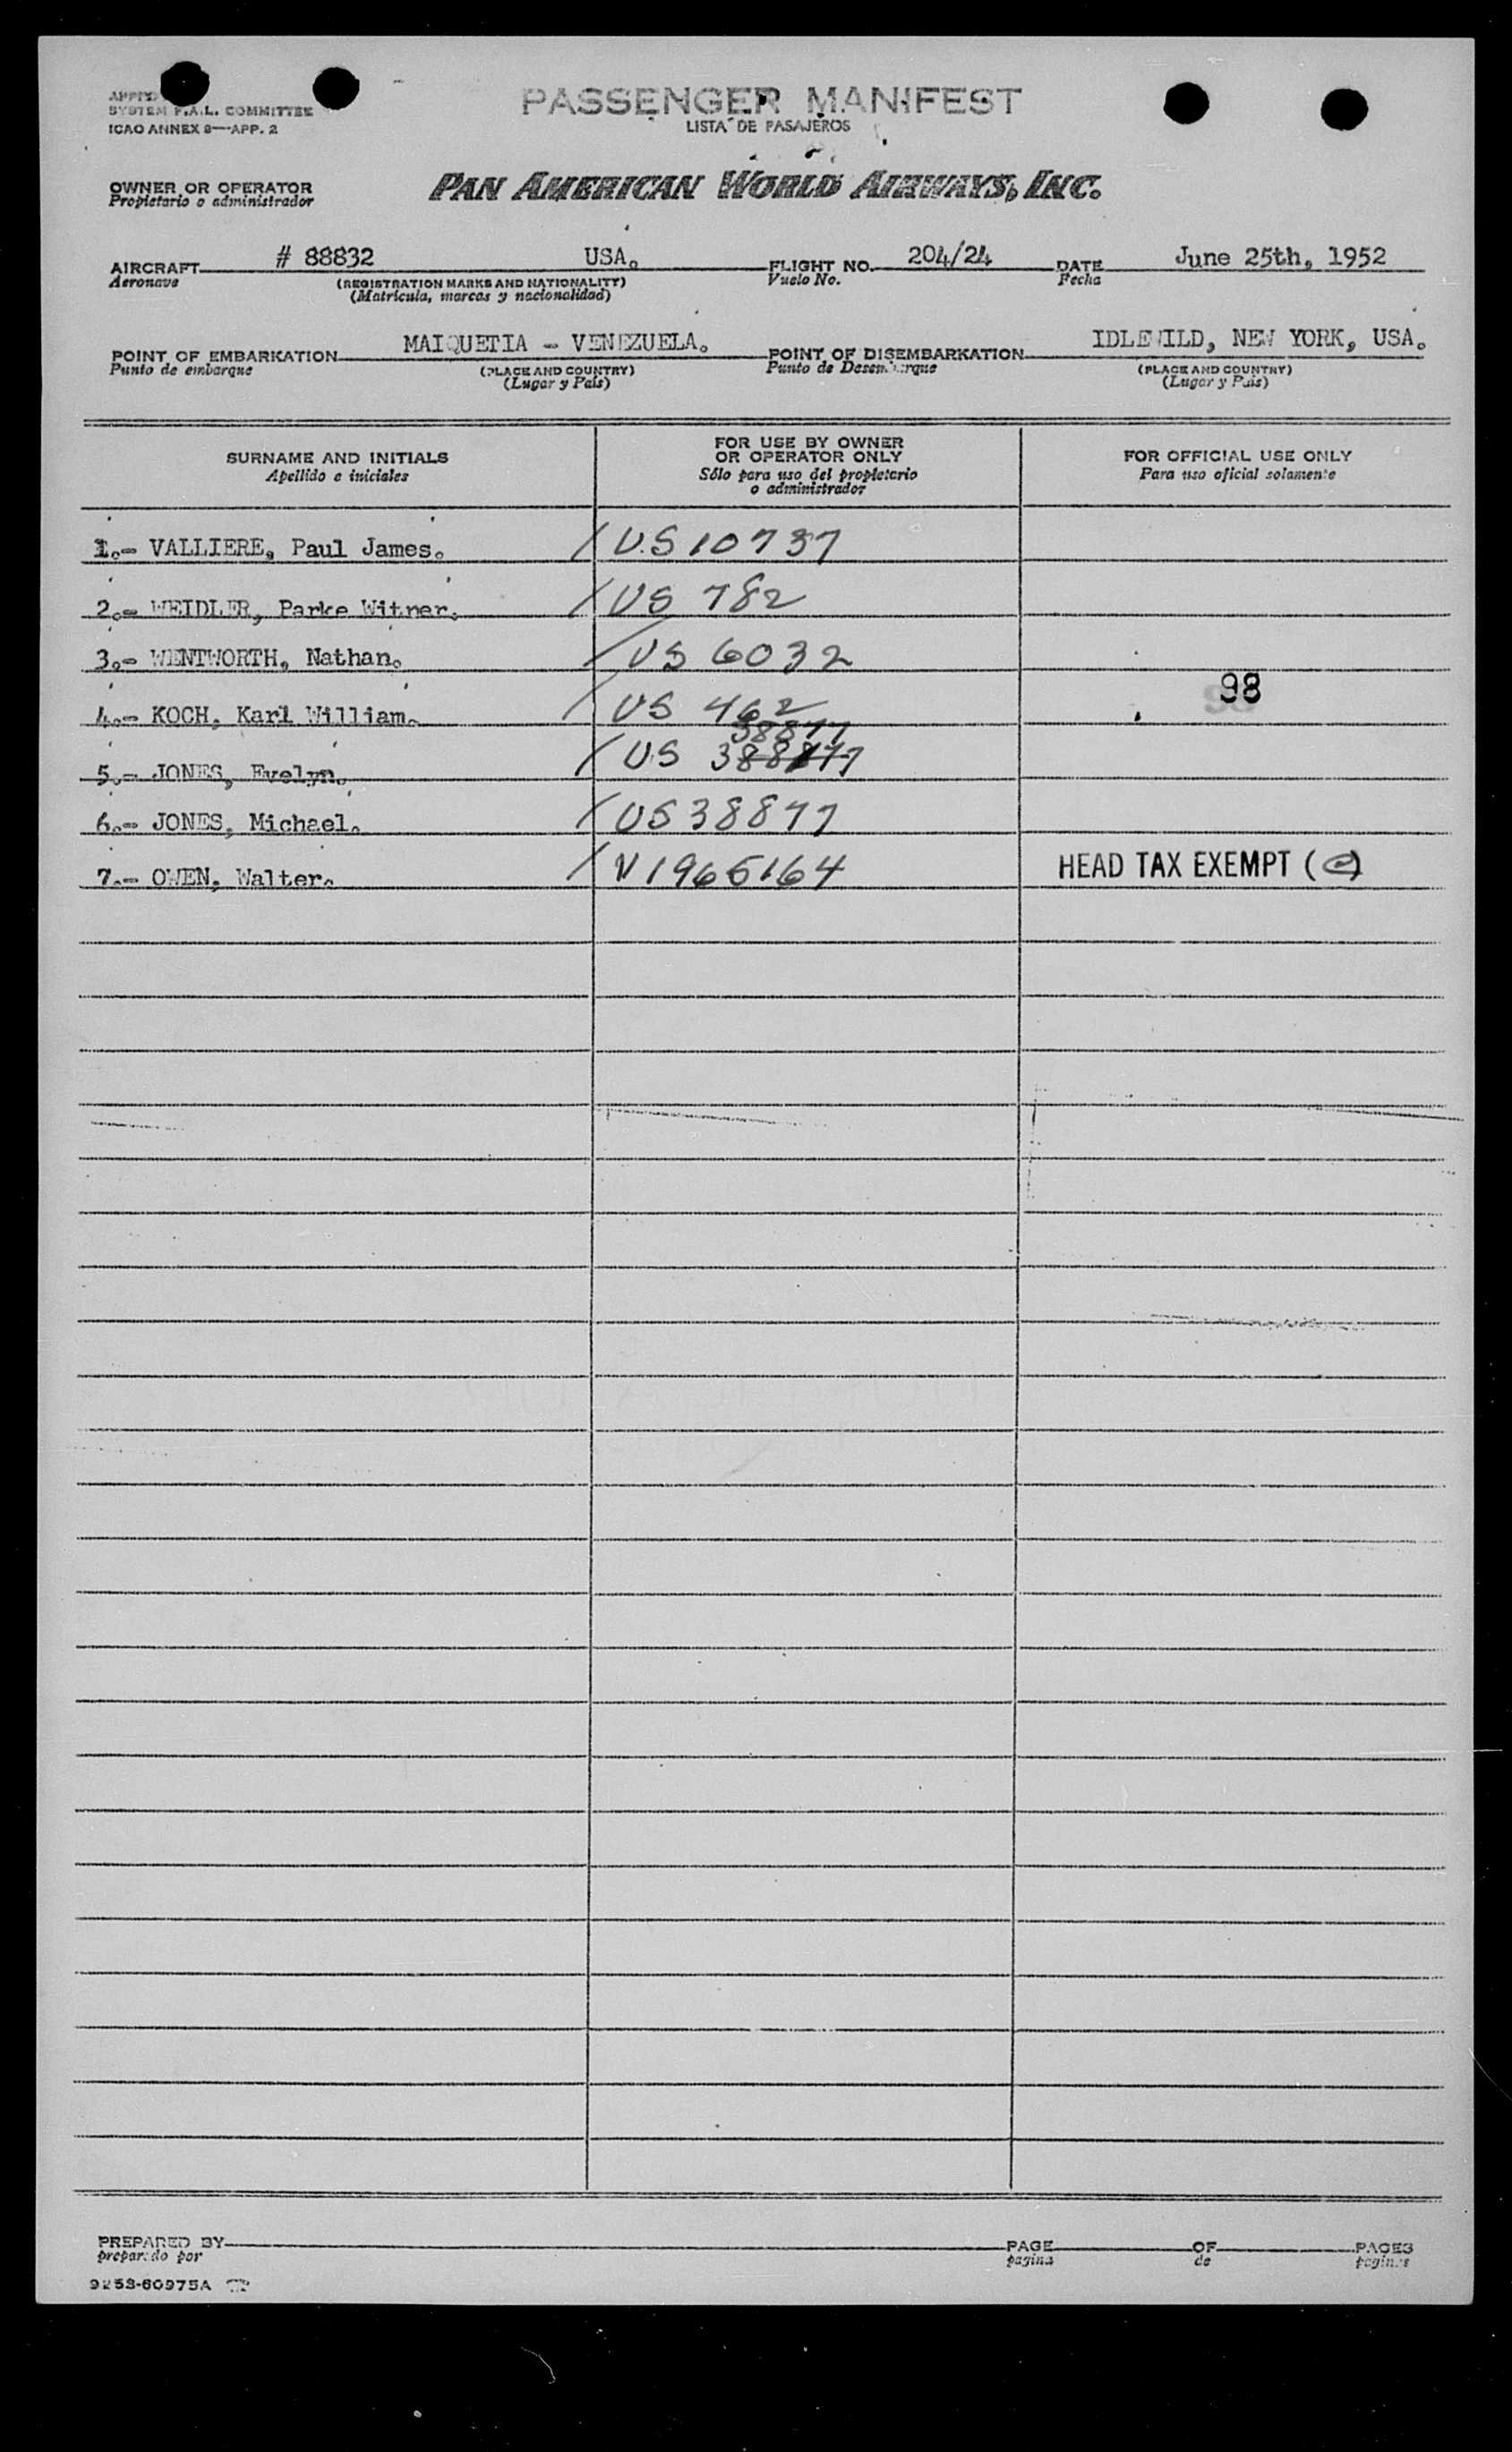 SYSTEM F.A.L. COMMITTEE
ICAO ANNEX 9—APP. 2
PASSENGER MANIFEST
LISTA DE PASAJEROS
OWNER OR OPERATOR
Propietario o administrador
PAN AMERICAN WORLD AIRWAYS, INC.
AIRCRAFT # 88832 USA. FLIGHT NO. 204/24 DATE June 25th, 1952
Aeronave (REGISTRATION MARKS AND NATIONALITY) Vuelo No. Fecha
(Matrícula, marcas y nacionalidad)
POINT OF EMBARKATION MAIQUETIA - VENEZUELA. POINT OF DISEMBARKATION IDLEWILD, NEW YORK, USA.
Punto de embarque (PLACE AND COUNTRY) Punto de Desembarque (PLACE AND COUNTRY)
(Lugar y País) (Lugar y País)
SURNAME AND INITIALS
Apellido e iniciales
FOR USE BY OWNER
OR OPERATOR ONLY
Sólo para uso del propietario
o administrador
FOR OFFICIAL USE ONLY
Para uso oficial solamente
1.- VALLIERE, Paul James. / US 10737
2.- WEIDLER, Parke Witner. / US 782
3.- WENTWORTH, Nathan. / US 6032
98
4.- KOCH, Karl William. / US 462
38877
5.- JONES, Evelyn. / US 388877
6.- JONES, Michael. / US 38877
7.- OWEN, Walter. / V1965164 HEAD TAX EXEMPT (c)
PREPARED BY PAGE OF PAGES
preparado por pagina de paginas
9253-60975A